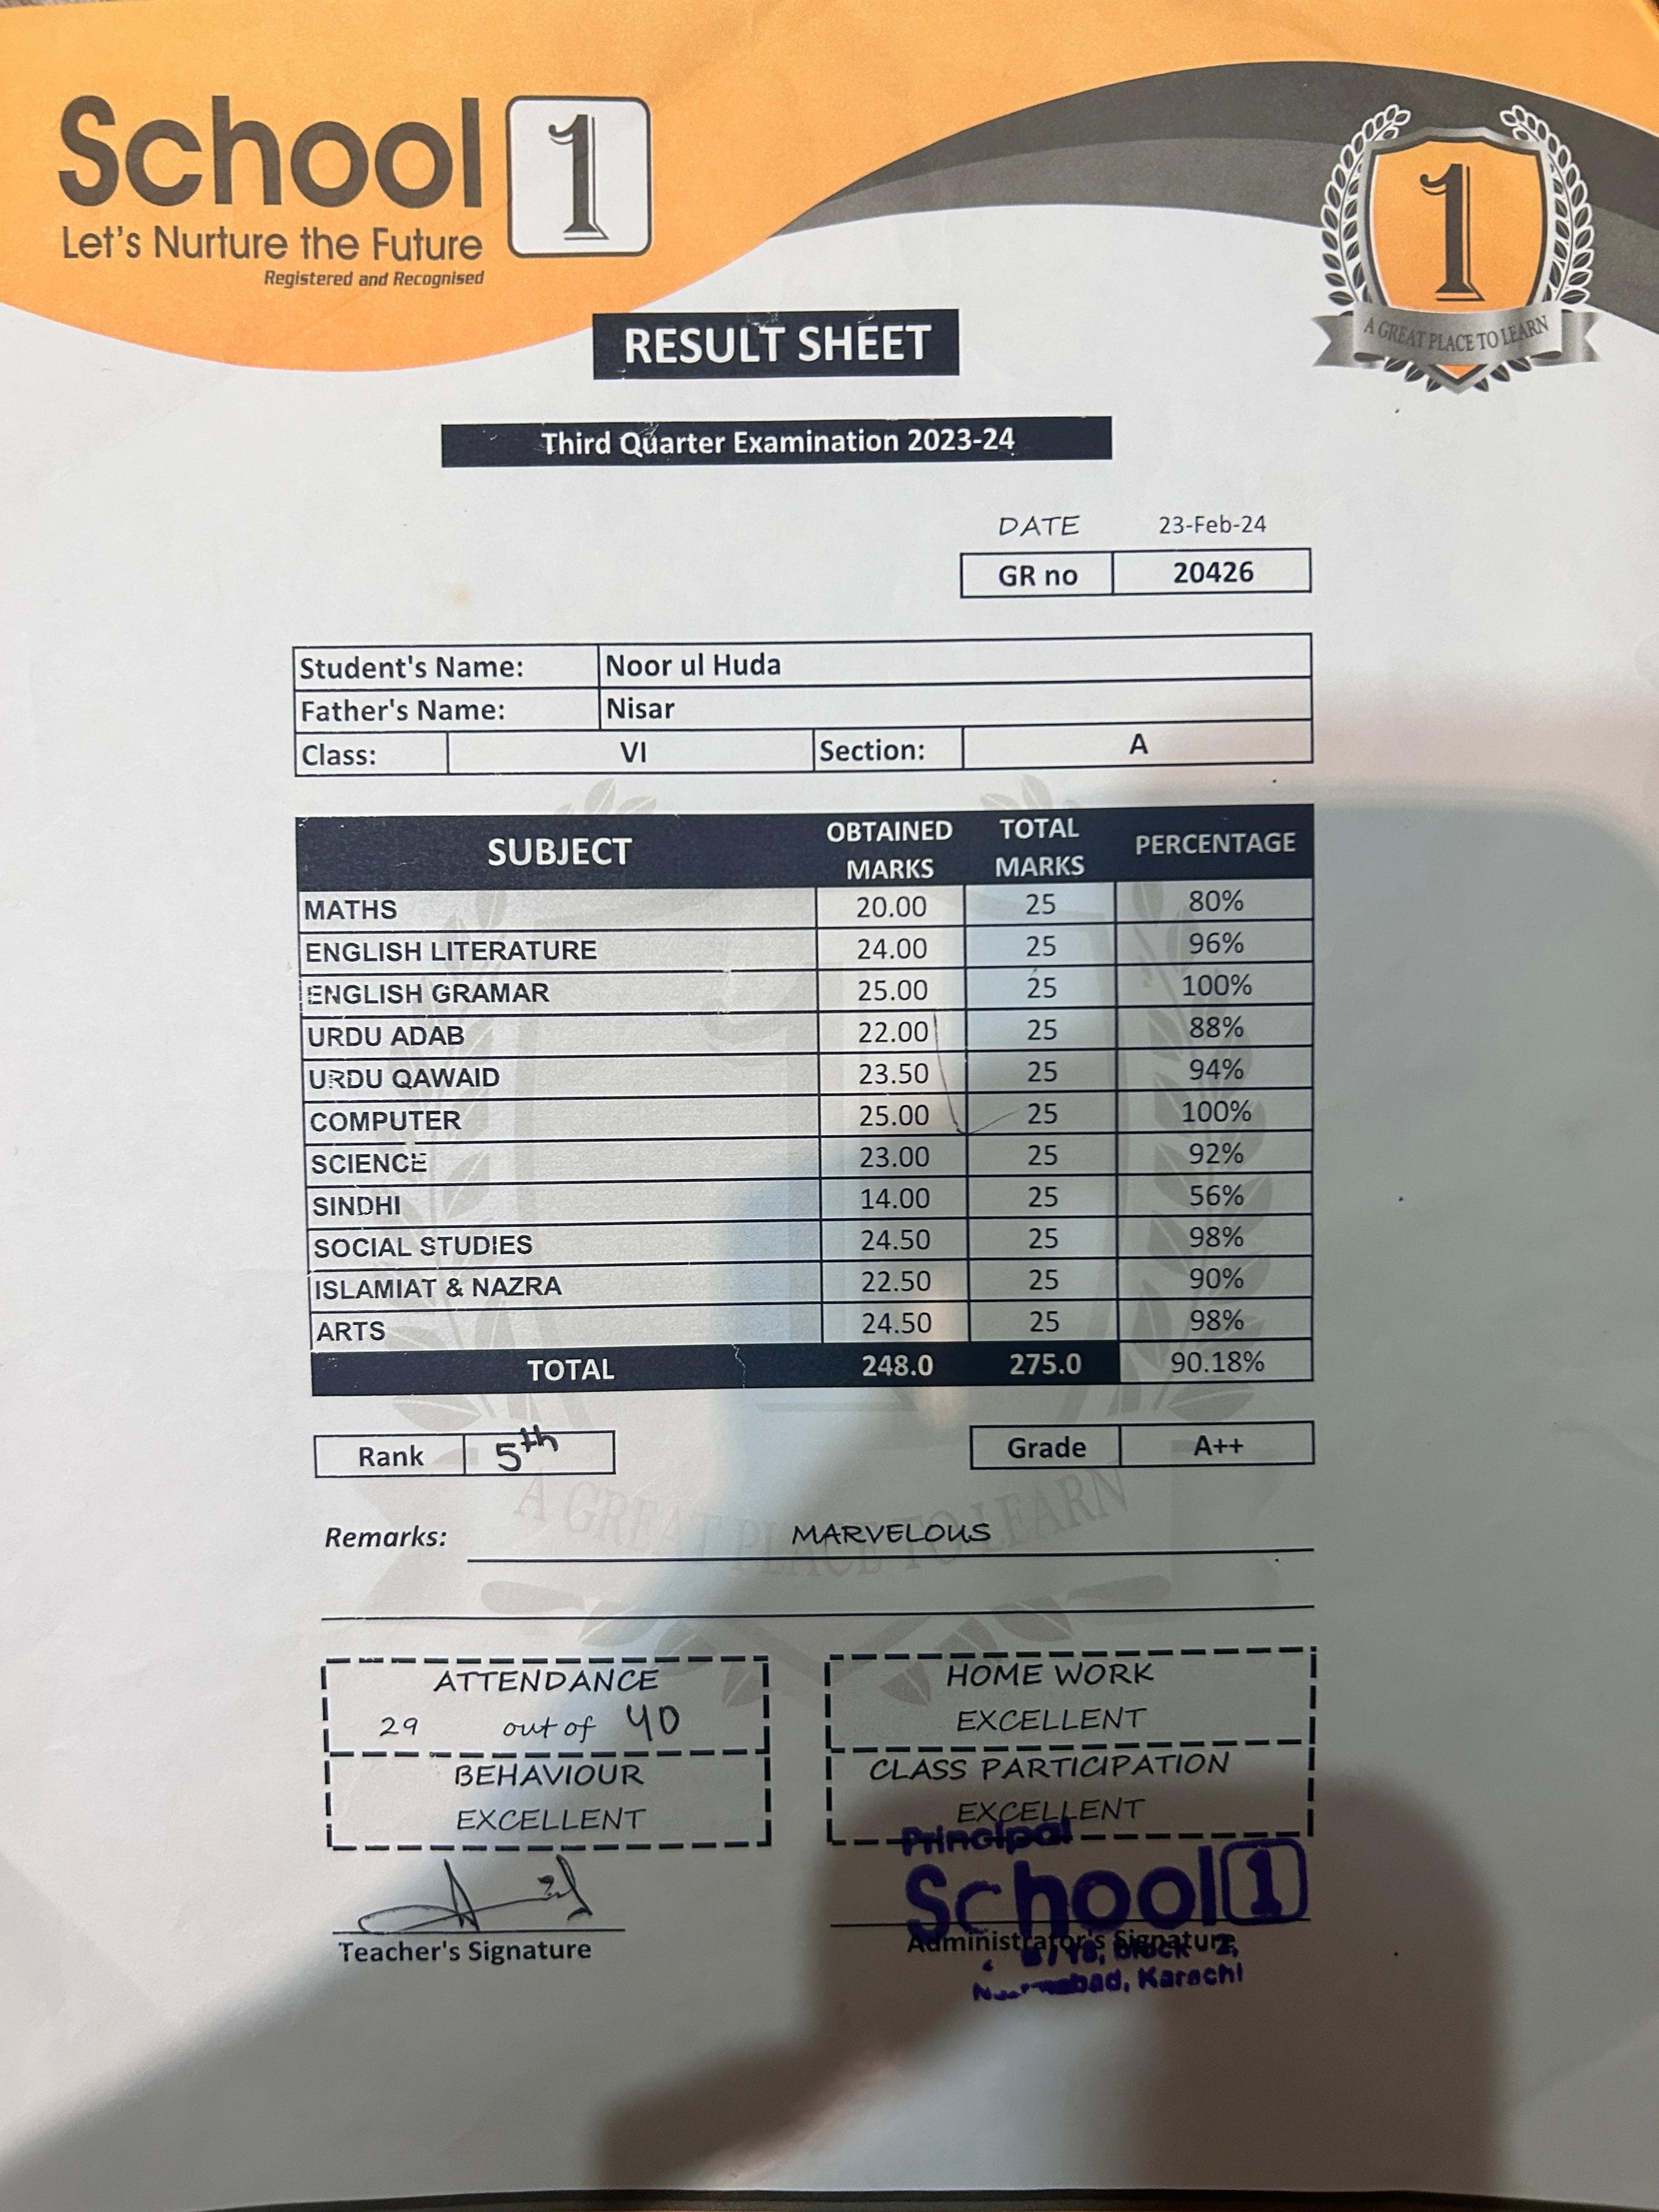 School 1
Let's Nurture the Future
Registered and Recognised
1
A GREAT PLACE TO LEARN
RESULT SHEET
Third Quarter Examination 2023-24
DATE 23-Feb-24
GR no 20426
Student's Name: Noor ul Huda
Father's Name: Nisar
Class: VI Section: A
SUBJECT OBTAINED MARKS TOTAL MARKS PERCENTAGE
MATHS 20.00 25 80%
ENGLISH LITERATURE 24.00 25 96%
ENGLISH GRAMAR 25.00 25 100%
URDU ADAB 22.00 25 88%
URDU QAWAID 23.50 25 94%
COMPUTER 25.00 25 100%
SCIENCE 23.00 25 92%
SINDHI 14.00 25 56%
SOCIAL STUDIES 24.50 25 98%
ISLAMIAT & NAZRA 22.50 25 90%
ARTS 24.50 25 98%
TOTAL 248.0 275.0 90.18%
Rank 5th Grade A++
A GREAT PLACE TO LEARN
Remarks: MARVELOUS
ATTENDANCE
29 out of 40
BEHAVIOUR
EXCELLENT
HOME WORK
EXCELLENT
CLASS PARTICIPATION
EXCELLENT
Principal
School 1
Teacher's Signature
Administrator's Signature
Karachi